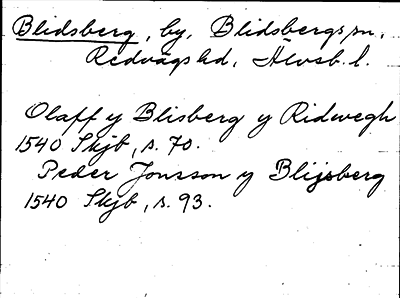 Blidsberg, by, Blidsbergs sn,
Redvägs hd, Älvsb. l.
Olaff y Blisberg y Ridwegh
1540 Skjb, s. 70.
Peder Jonsson y Blijsberg
1540 Skjb, s. 93.